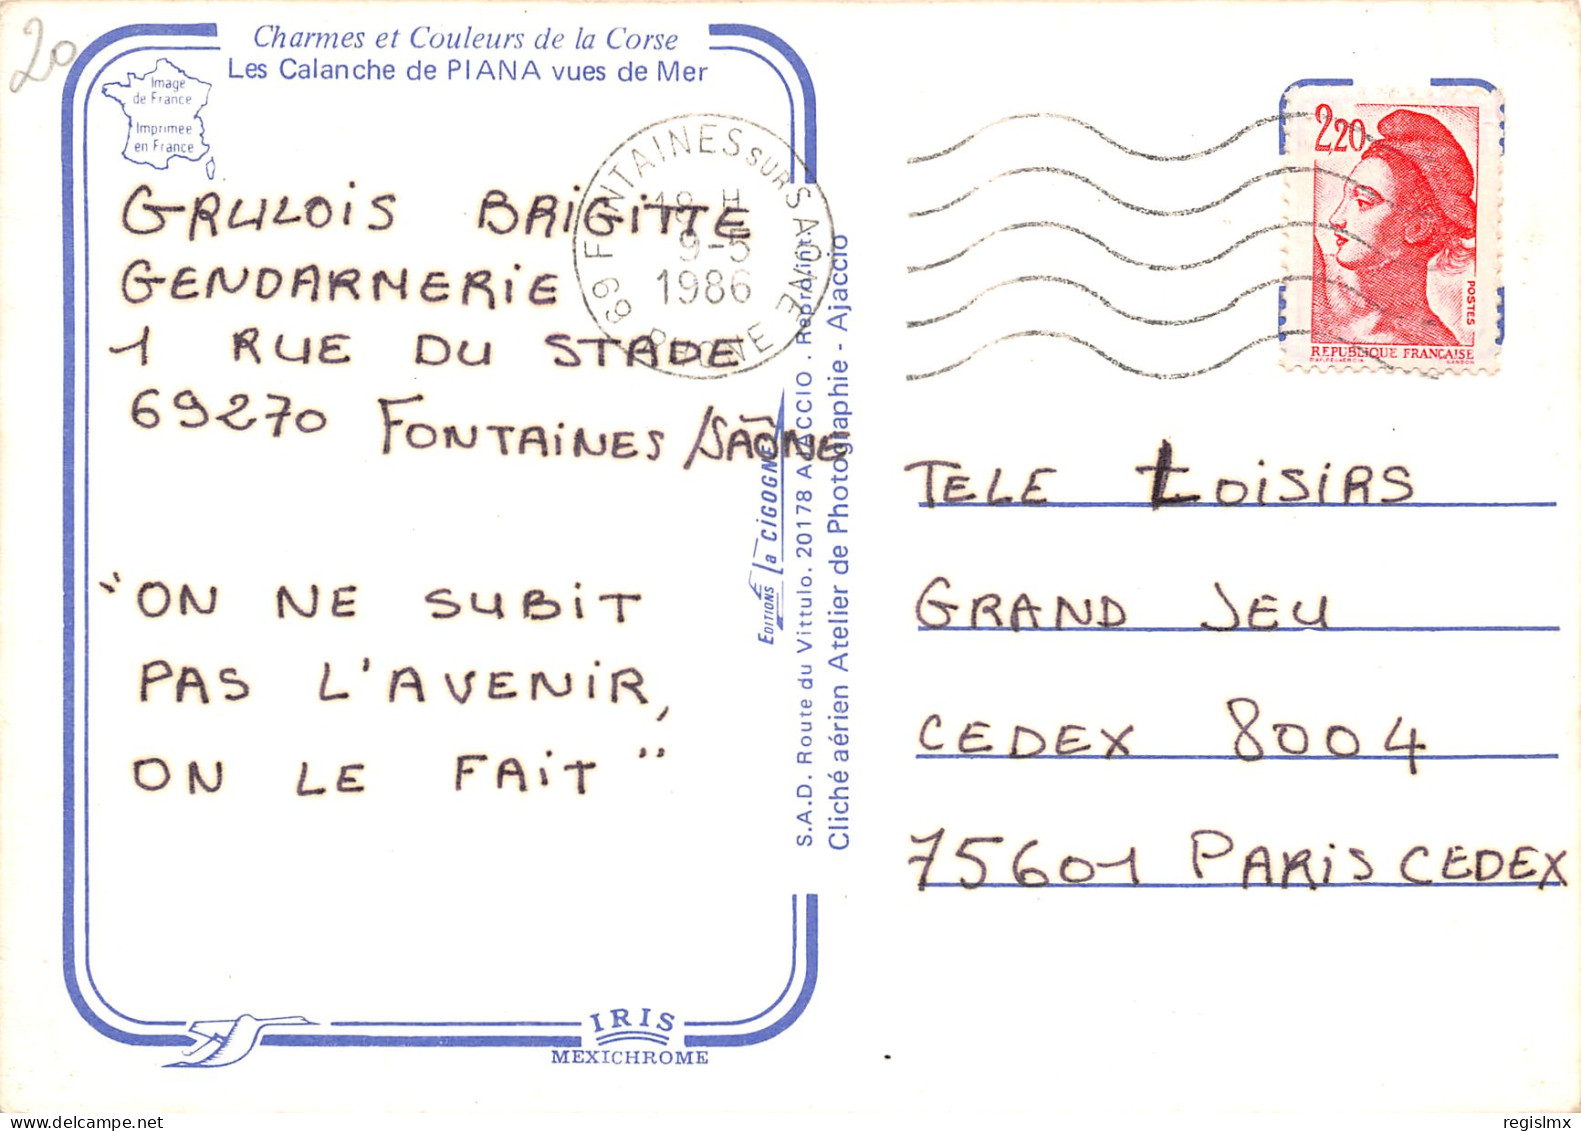 20
Charmes et Couleurs de la Corse
Les Calanche de PIANA vues de Mer
Image
de France
Imprimée
en France
69 FONTAINES SUR SAONE RHONE
18 H
9-5
1986
2,20
POSTES
REPUBLIQUE FRANÇAISE
GANDON
BRIGITTE
GENDARMERIE
1 RUE DU STADE
69270 FONTAINES /SAÔNE
"ON NE SUBIT
PAS L'AVENIR,
ON LE FAIT"
EDITIONS La CIGOGNE
S.A.D. Route du Vittulo. 20178 AJACCIO . Repro. int.
Cliché aérien Atelier de Photographie - Ajaccio
TELE LOISIRS
GRAND JEU
CEDEX 8004
75601 PARIS CEDEX
IRIS
MEXICHROME
regislmx